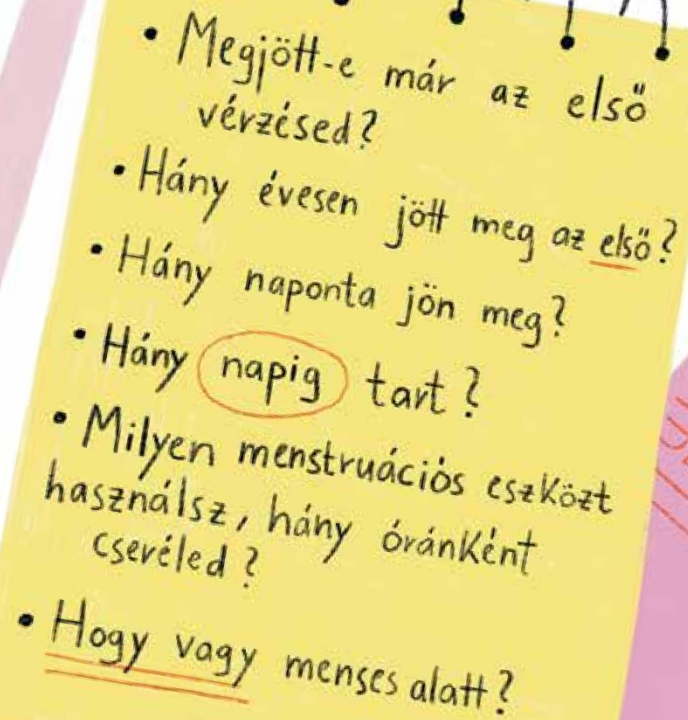 • Megjött-e már az első
vérzésed?
• Hány évesen jött meg az első?
• Hány naponta jön meg?
• Hány napig tart?
• Milyen menstruációs eszközt
használsz, hány óránként
cseréled?
• Hogy vagy menses alatt?